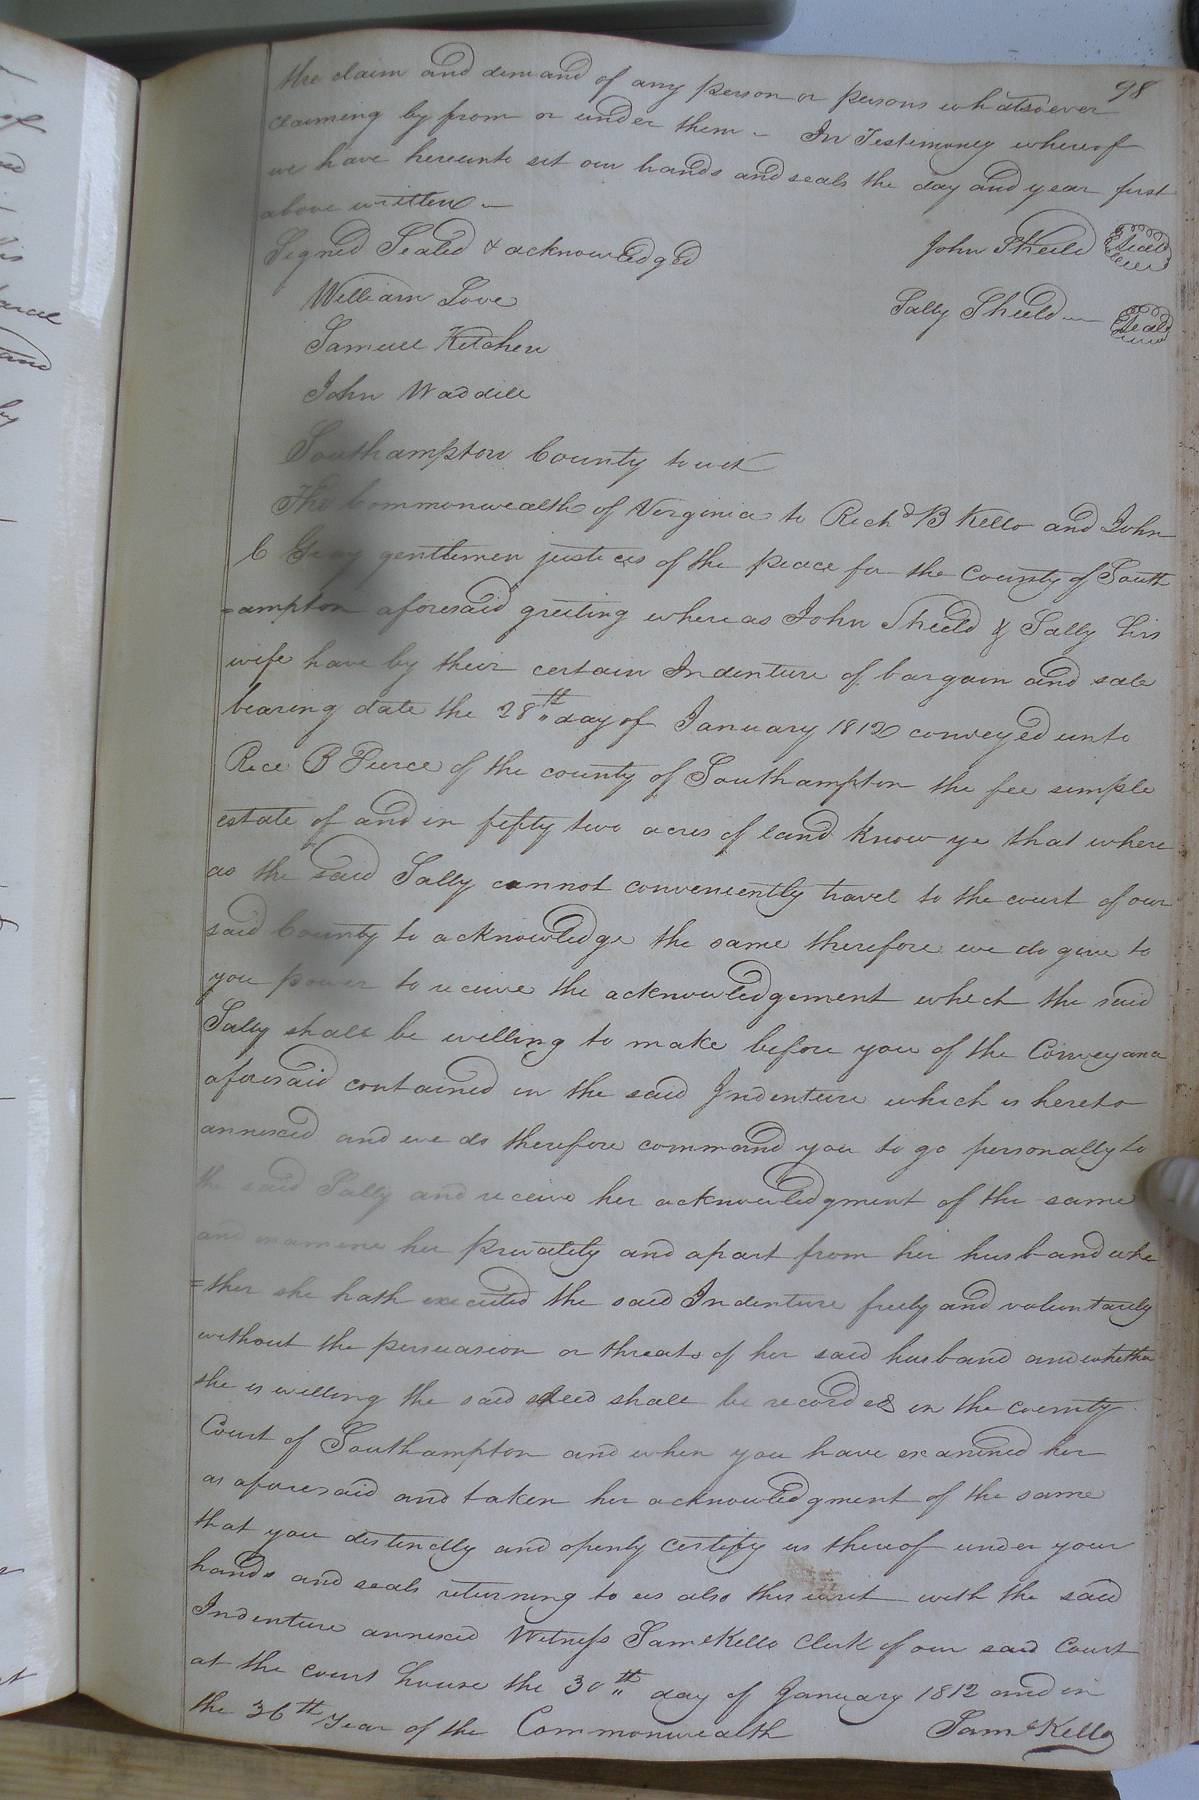 98
the claim and demand of any person or persons whatsoever
claiming by from or under them - In Testimoney whereof
we have hereunto set our hands and seals the day and year first
above written -
Signed Sealed & acknowledged
John Sheild Seal
William Love
Sally Sheild Seal
Samuel Kitchen
John Waddill
Southampton County towit
The Commonwealth of Virginia to Richd B Kello and John
C Gray gentlemen justices of the peace for the County of South
=ampton aforesaid greeting whereas John Sheild & Sally his
wife have by their certain Indenture of bargain and sale
bearing date the 28th day of January 1812 conveyed unto
Rice B Pierce of the county of Southampton the fee simple
estate of and in fifty two acres of land know ye that where
as the said Sally cannot conveniently travel to the court of our
said County to acknowledge the same therefore we do give to
you power to receive the acknowledgement which the said
Sally shall be willing to make before you of the Conveyance
aforesaid contained in the said Indenture which is hereto
annexed and we do therefore command you to go personally to
the said Sally and receive her acknowledgment of the same
and examine her privately and apart from her husband whe
=ther she hath executed the said Indenture freely and voluntarily
without the persuasion or threats of her said husband and whether
she is willing the said deed shall be recorded in the county
Court of Southampton and when you have examined her
as aforesaid and taken her acknowledgment of the same
that you distinctly and openly certify us thereof under your
hands and seals returning to us also this writ with the said
Indenture annexed Witness Saml Kello Clerk of our said Court
at the court house the 30th day of January 1812 and in
the 36th Year of the Commonwealth Saml Kello